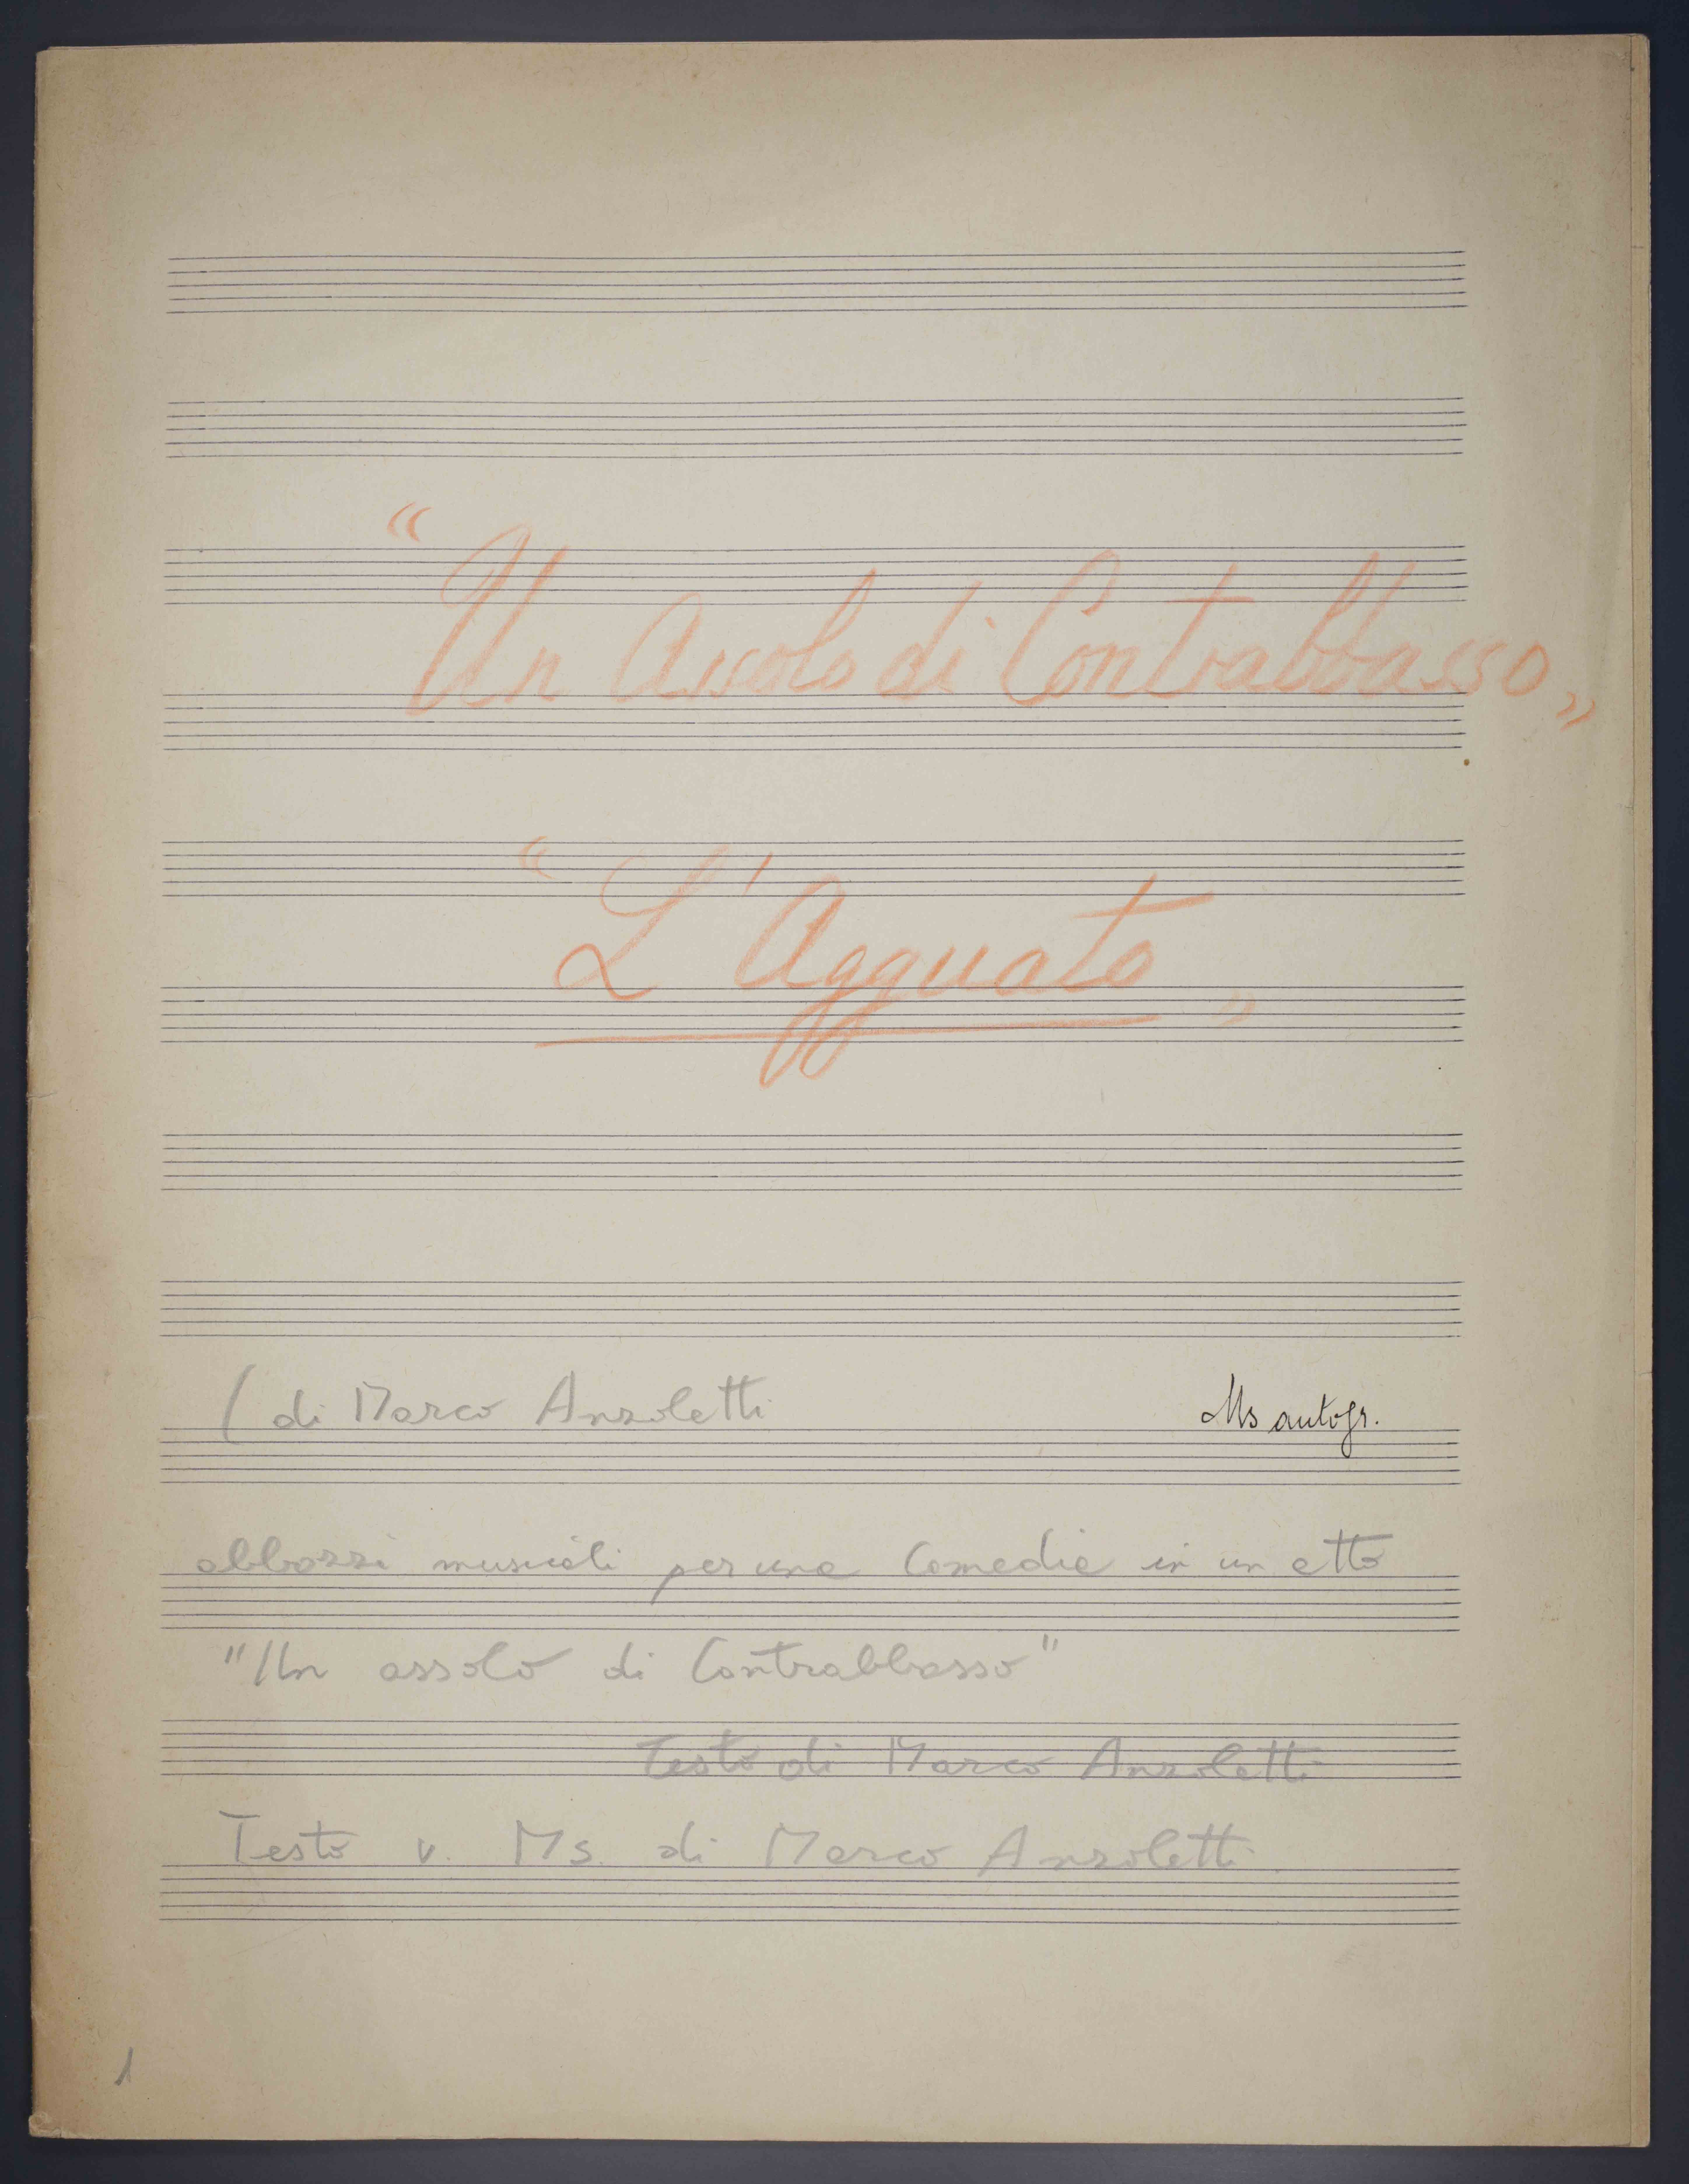 “Un Assolo di Contrabbasso„
“L'Agguato„
(di Marco Anzoletti
Ms autogr.
abbozzi musicali per una Comedia in un atto
"Un assolo di Contrabbasso"
Testo di Marco Anzoletti
Testo v. Ms. di Marco Anzoletti
1